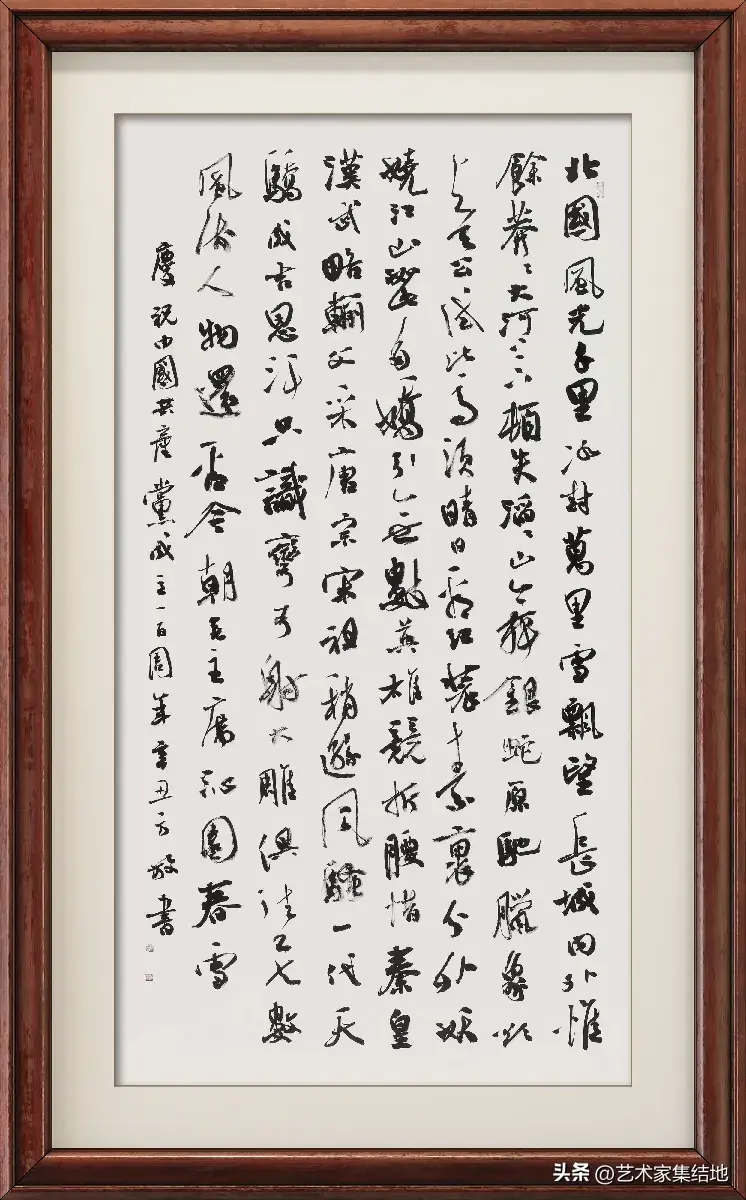 北國風光千里冰封萬里雪飄望長城内外惟
餘莽々大河上下頓失滔々山舞銀蛇原馳臘象欲
与天公試比高須晴日看紅裝素裹分外妖
嬈江山如此多嬌引無數英雄競折腰惜秦皇
漢武略輸文采唐宗宋祖稍遜風騷一代天
驕成吉思汗只識彎弓射大雕俱往矣數
風流人物還看今朝毛主席沁園春雪
慶祝中國共産黨成立一百周年辛丑方放書
头条 @艺术家集结地